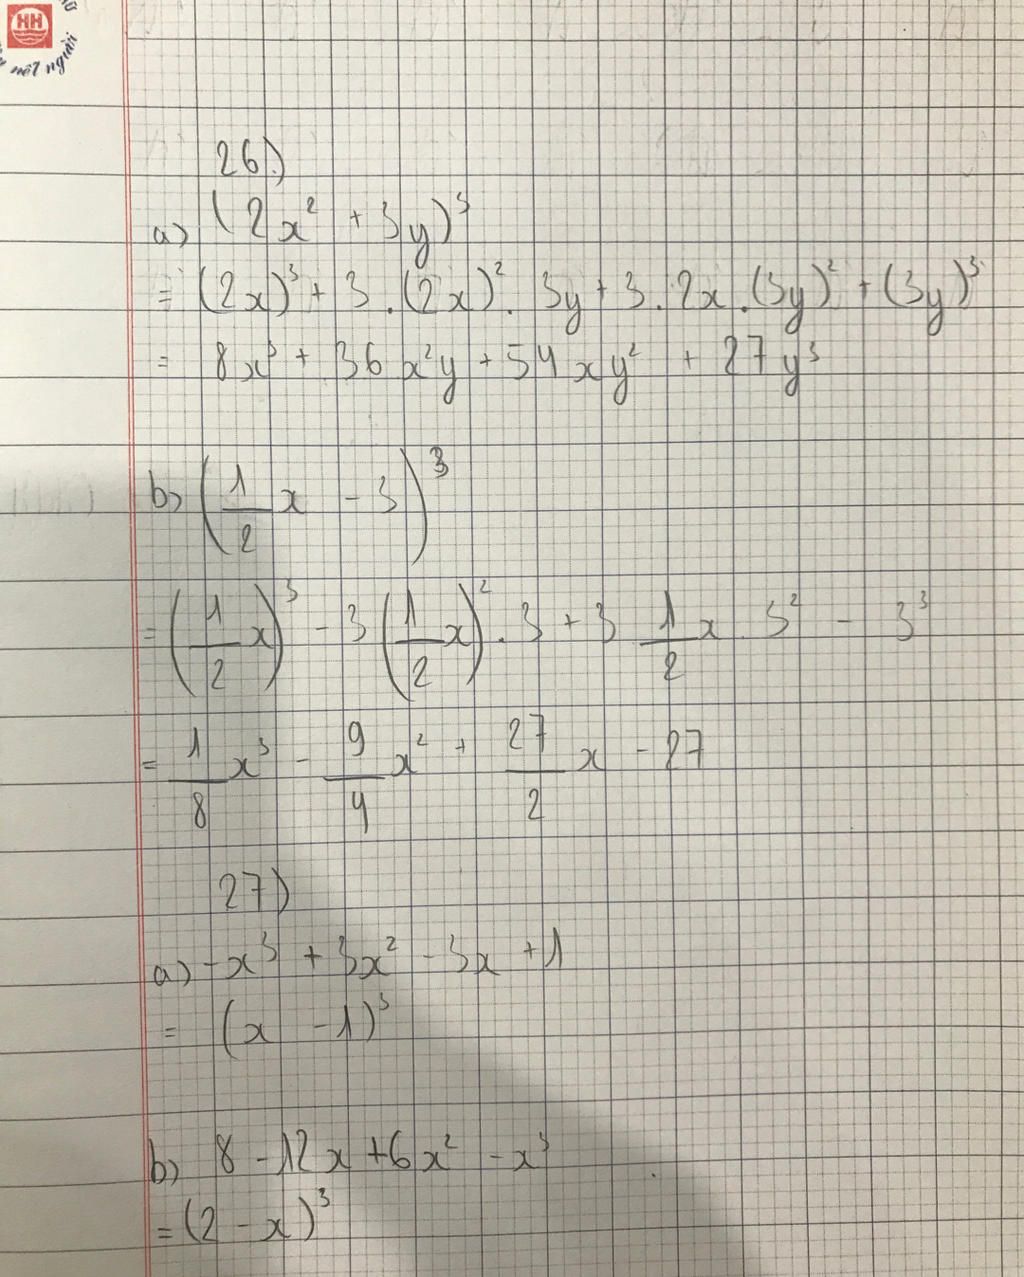 HH
một người
26)
a) (2x² + 3y)³
= (2x)³ + 3 . (2x)² . 3y + 3 . 2x . (3y)² + (3y)³
= 8x³ + 36 x²y + 54 xy² + 27 y³
b) (1/2 x - 3)³
= (1/2 x)³ - 3 (1/2 x)² . 3 + 3 1/2 x 3² - 3³
= 1/8 x³ - 9/4 x² + 27/2 x - 27
27)
a) -x³ + 3x² - 3x + 1
= (x - 1)³
b) 8 - 12x + 6x² - x³
= (2 - x)³